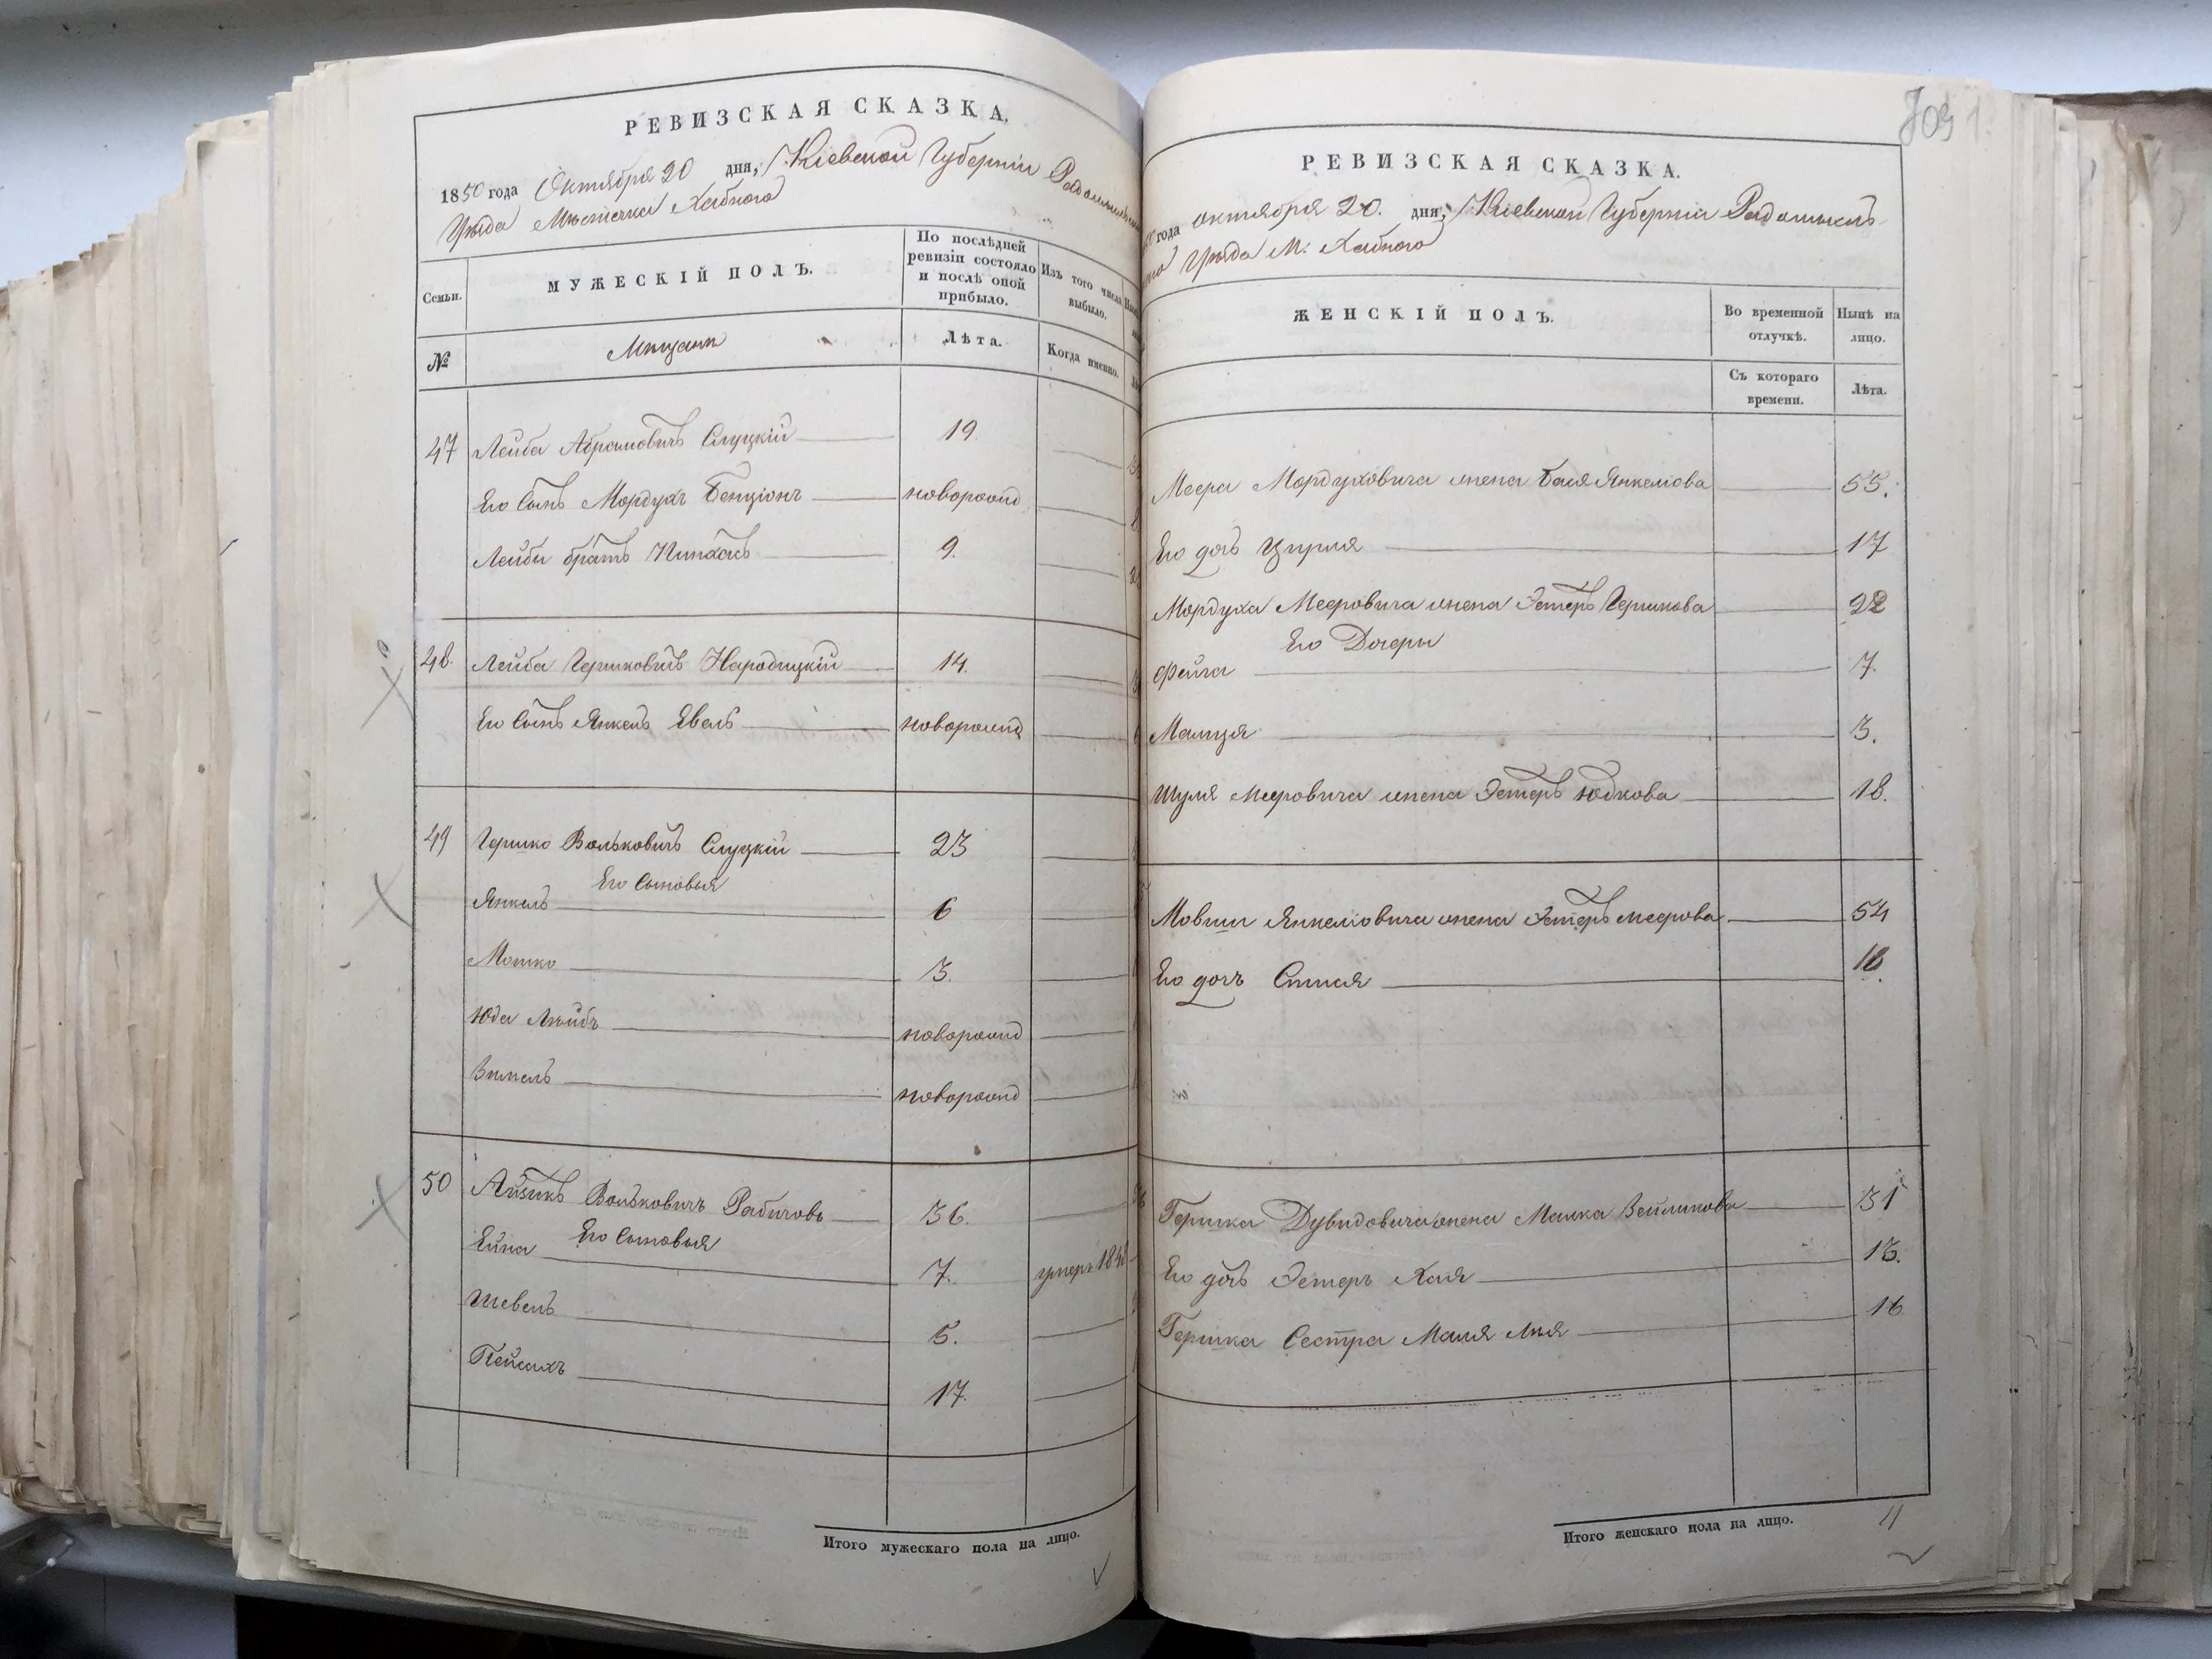 РЕВИЗСКАЯ СКАЗКА.
1850 года Октября 20 дня, Кіевской Губерніи
Уѣзда Мѣстечка Хабного
Семьи.
МУЖЕСКІЙ ПОЛЪ.
По послѣдней ревизіи состояло и послѣ оной прибыло.
Изъ того числа выбыло.
№
Мѣщане
Лѣта.
Когда именно.
47 Лейба Абрамовичъ Слуцкій 19
Его Сынъ Мордухъ Бенціонъ новорожд
Лейбы братъ Пинхасъ 9.
48. Лейба Гершковичъ Народицкій 14.
Его Сынъ Янкель Евель новорожд
49 Гершко Вольковичъ Слуцкій 23
Его Сыновья
Янкель 6
Мошко 3.
Юда Лѣйбъ новорожд
Зимель новорожд
50 Айзикъ Вольковичъ Рабичовъ 36.
Его Сыновья
Ейна 7. умеръ
Шевель 5.
Пейсихъ 17.
Итого мужескаго пола на лицо.
РЕВИЗСКАЯ СКАЗКА.
года октября 20. дня, Кіевской Губерніи Радомысль
Уѣзда М. Хабного
ЖЕНСКІЙ ПОЛЪ.
Во временной отлучкѣ.
Нынѣ на лицо.
Съ котораго времени.
Лѣта.
Меера Мордуховича жена Бася Янкелiова 55.
Его дочь Цирля 17
Мордуха Мееровича жена Эстеръ Гершкова 22
Его Дочери
Фейга 7.
Малця 3.
Шуля Мееровича жена Эстеръ Юдкова 18.
Мовши Янкеліовича жена Эстеръ Меерова 54
Его дочь 18.
Гершка Дувидовича жена Малка 31
Его дочь Эстеръ Хая 13.
Гершка Сестра Маля Лѣя 16
Итого женскаго пола на лицо.
11